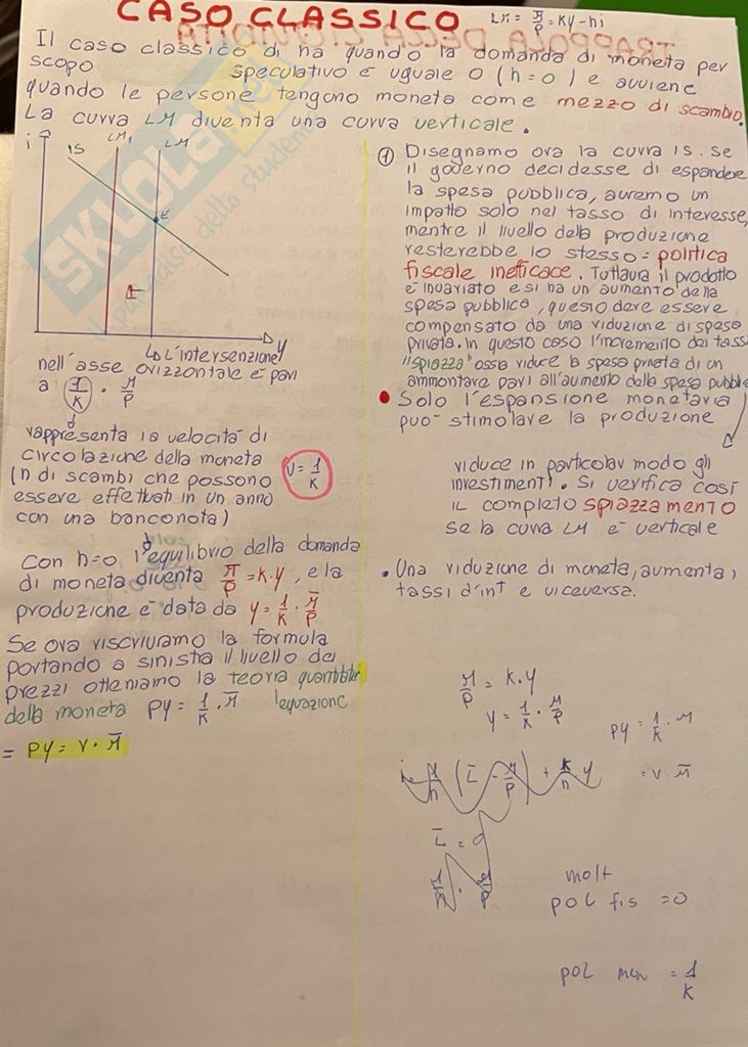 CASO CLASSICO LM: M/P = KY - hi
Il caso classico si ha quando la domanda di moneta per
scopo speculativo è uguale 0 (h=0) e avviene
quando le persone tengono moneta come mezzo di scambio.
La curva LM diventa una curva verticale.
i IS LM1 LM
E
Y
L'intersenzione
nell'asse orizzontale è pari
a 1/K · M/P
rappresenta la velocità di
circolazione della moneta
(n di scambi che possono
essere effettuati in un anno
con una banconota)
V = 1/K
Con h=0 l'equilibrio della domanda
di moneta diventa M̄/P = K·Y, e la
produzione è data da Y = 1/K · M̄/P
Se ora riscriviamo la formula
portando a sinistra il livello dei
prezzi otteniamo la teoria quantitativa
della moneta PY = 1/K · M̄ l'equazione
= PY = V · M̄
① Disegnamo ora la curva IS. Se
il governo decidesse di espandere
la spesa pubblica, avremo un
impatto solo nel tasso di interesse,
mentre il livello della produzione
resterebbe lo stesso = politica
fiscale inefficace. Tuttavia il prodotto
è invariato e si ha un aumento della
spesa pubblica, questo deve essere
compensato da una riduzione di spesa
privata. In questo caso l'incremento dei tassi
"spiazza" ossia riduce la spesa privata di un
ammontare pari all'aumento della spesa pubblica
• Solo l'espansione monetaria
può stimolare la produzione
riduce in particolar modo gli
investimenti. Si verifica così
il completo spiazzamento
se la curva LM è verticale
• Una riduzione di moneta, aumenta i
tassi d'int e viceversa.
M/P = K·Y
Y = 1/K · M/P
PY = 1/K · M
= V · M̄
L̄ = 0
molt
pol fis = 0
pol mon = 1/K
SKUOLA